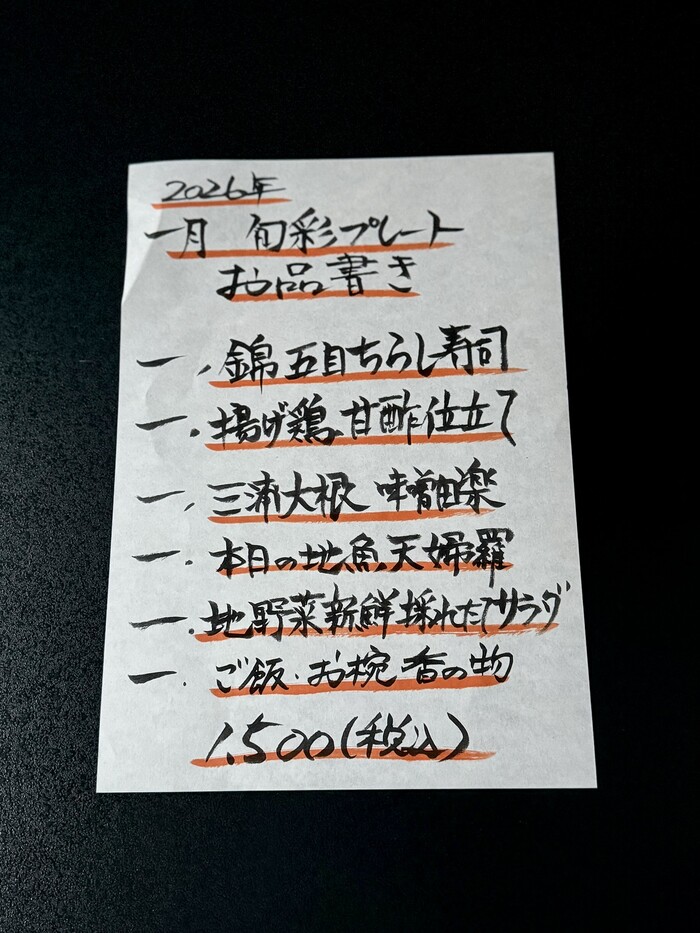 2026年
一月 旬彩プレート
お品書き
一、錦五目ちらし寿司
一、揚げ鶏甘酢仕立て
一、三浦大根 味噌田楽
一、本日の地魚天婦羅
一、地野菜新鮮採れたてサラダ
一、ご飯・お椀 香の物
1,500(税込)